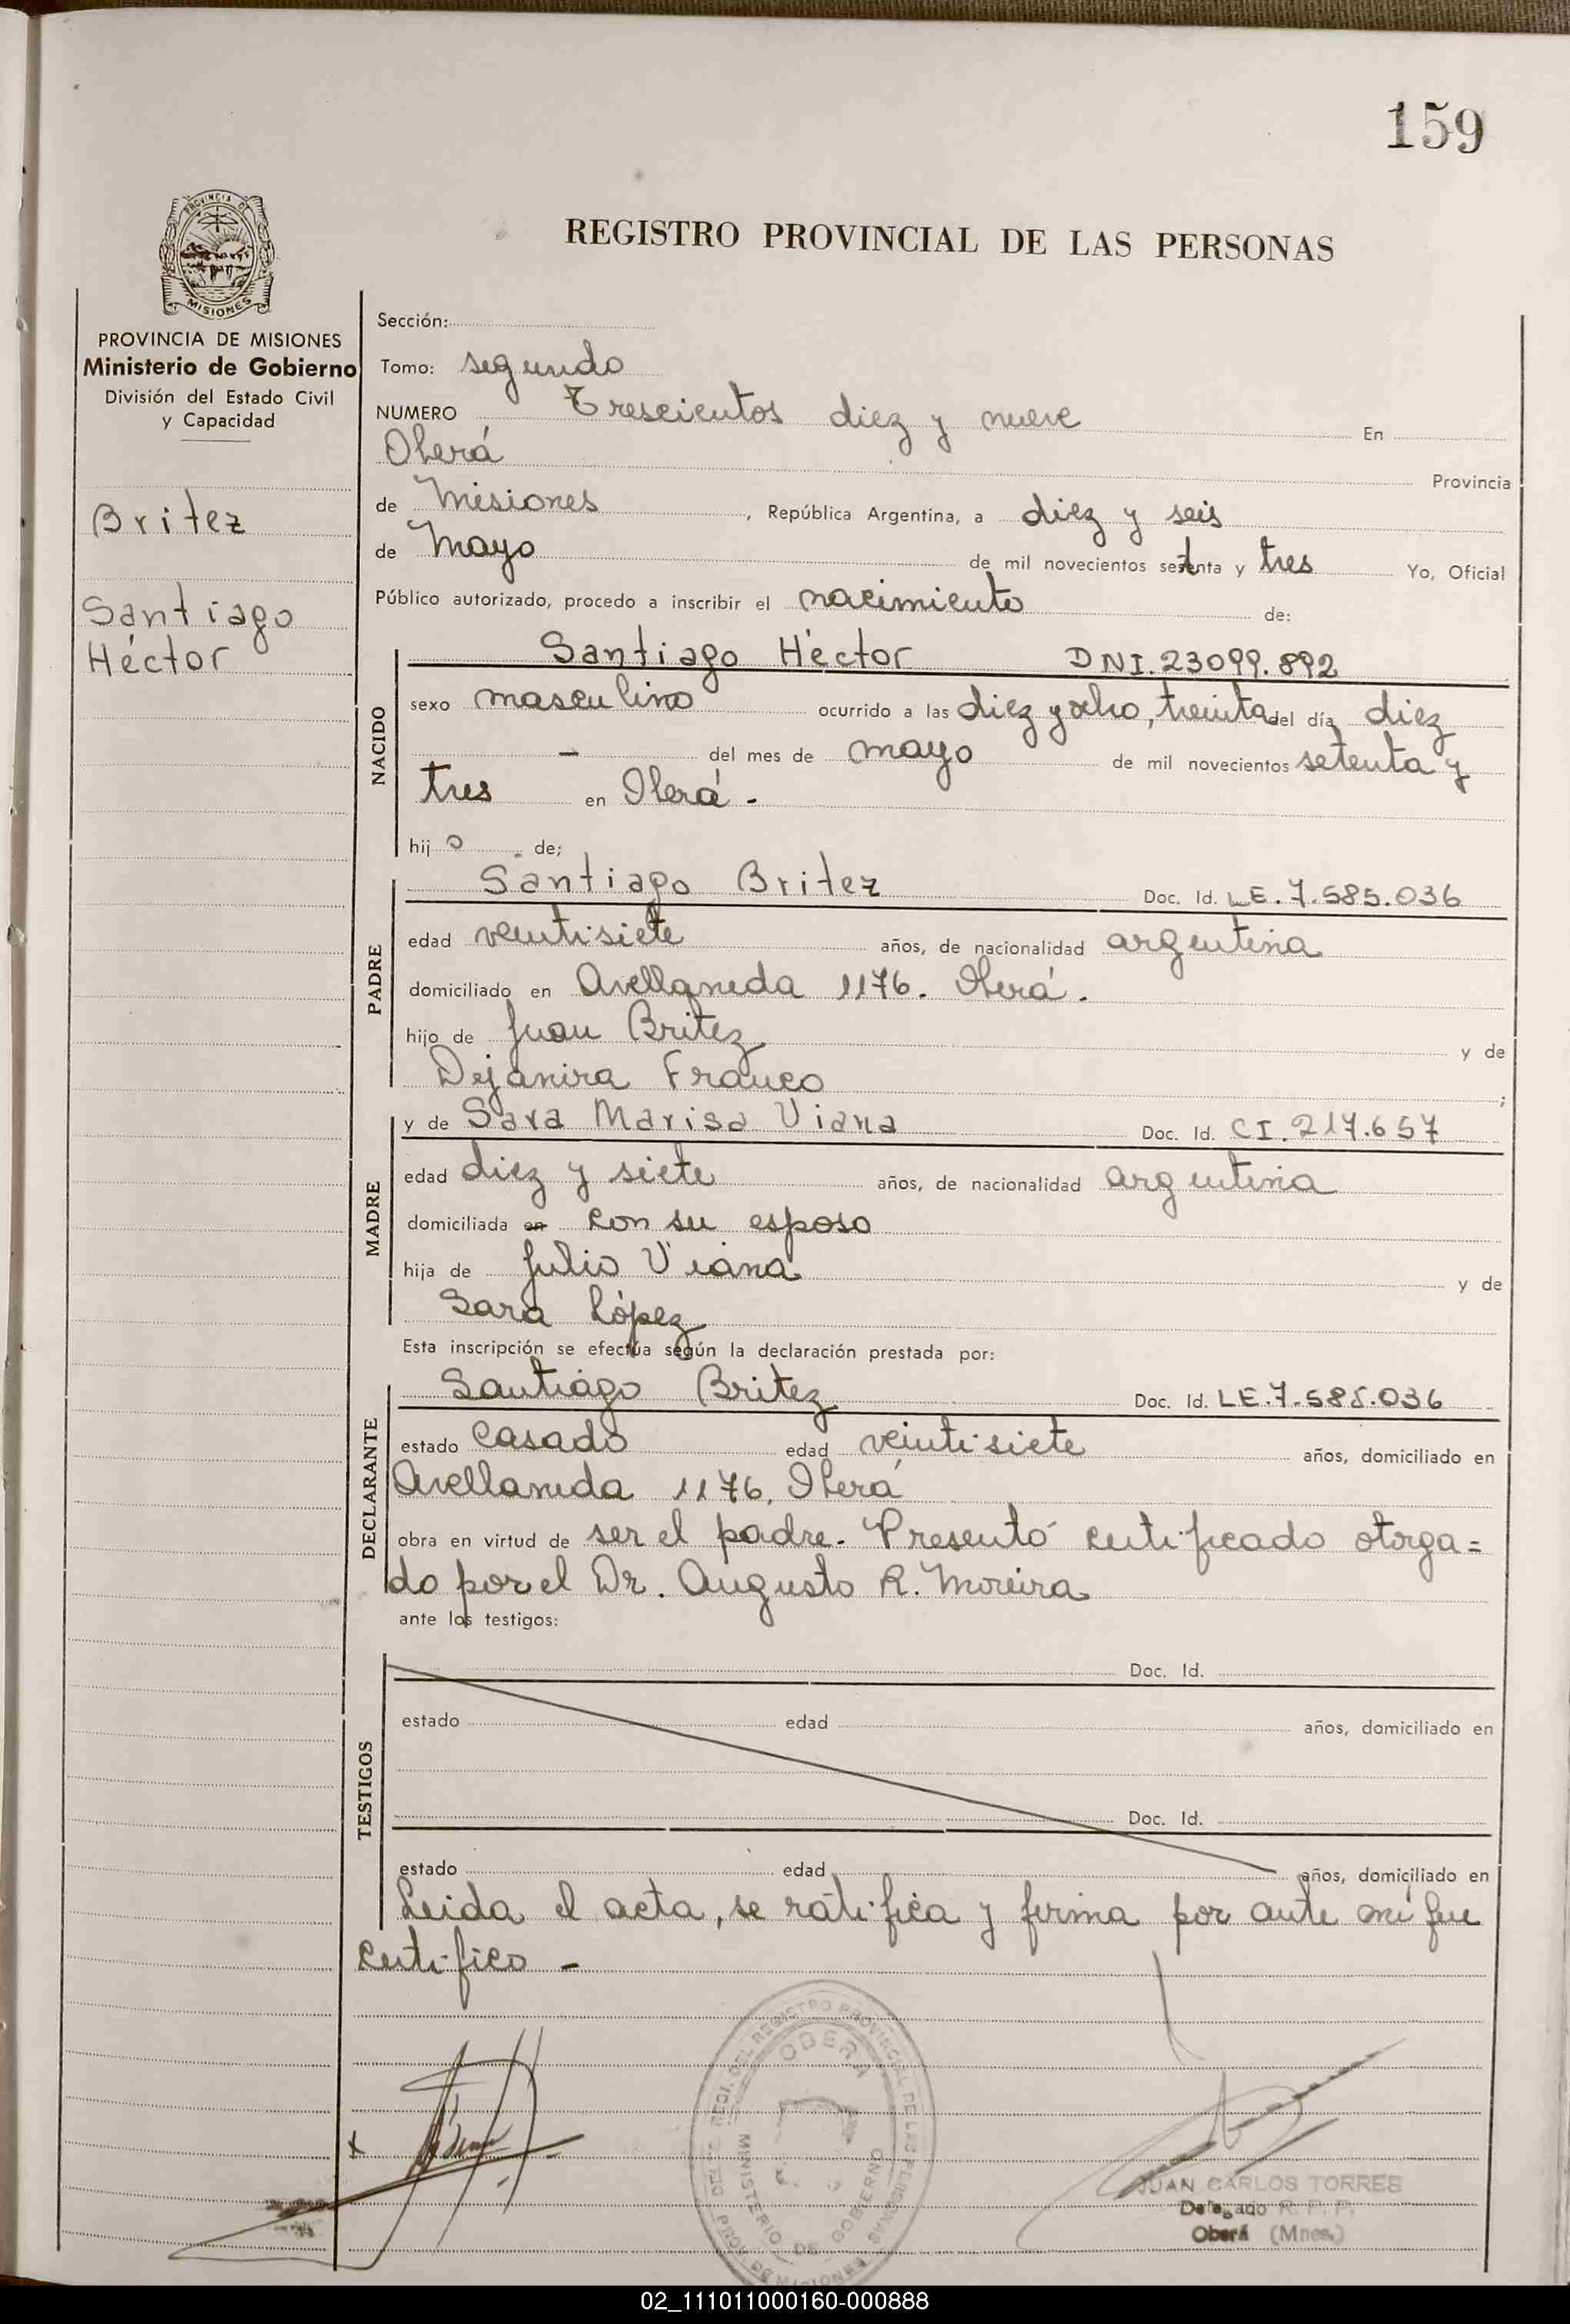 159
PROVINCIA DE
MISIONES
REGISTRO PROVINCIAL DE LAS PERSONAS
PROVINCIA DE MISIONES
Ministerio de Gobierno
División del Estado Civil
y Capacidad
Britez
Santiago
Héctor
Sección:
Tomo: segundo
NUMERO Trescientos diez y nueve En
Oberá Provincia
de Misiones, República Argentina, a diez y seis
de Mayo de mil novecientos setenta y tres Yo, Oficial
Público autorizado, procedo a inscribir el nacimiento de:
NACIDO
Santiago Héctor DNI.23099.892
sexo masculino ocurrido a las diez y ocho, treinta del día diez
- del mes de mayo de mil novecientos setenta y
tres en Oberá.-
hijo de;
PADRE
Santiago Britez Doc. Id. LE.7.585.036
edad veintisiete años, de nacionalidad argentina
domiciliado en Avellaneda 1176. Oberá.
hijo de Juan Britez y de
Dejanira Franco ;
MADRE
y de Sara Marisa Viana Doc. Id. CI.217.657
edad diez y siete años, de nacionalidad argentina
domiciliada en con su esposo
hija de Julio Viana y de
Sara López
Esta inscripción se efectúa según la declaración prestada por:
DECLARANTE
Santiago Britez Doc. Id. LE.7.585.036
estado casado edad veintisiete años, domiciliado en
Avellaneda 1176, Oberá
obra en virtud de ser el padre. Presentó certificado otorga=
do por el Dr. Augusto R. Moreira
ante los testigos:
TESTIGOS
Doc. Id.
estado edad años, domiciliado en
Doc. Id.
estado edad años, domiciliado en
Leida el acta, se ratifica y firma por ante mí que
certifico -
x
DEL REGISTRO PROVINCIAL DE LAS PERSONAS
OBERA
MINISTERIO DE GOBIERNO
PROV. DE MISIONES
JUAN CARLOS TORRES
Delegado R. P. P.
Oberá (Mnes.)
02_111011000160-000888